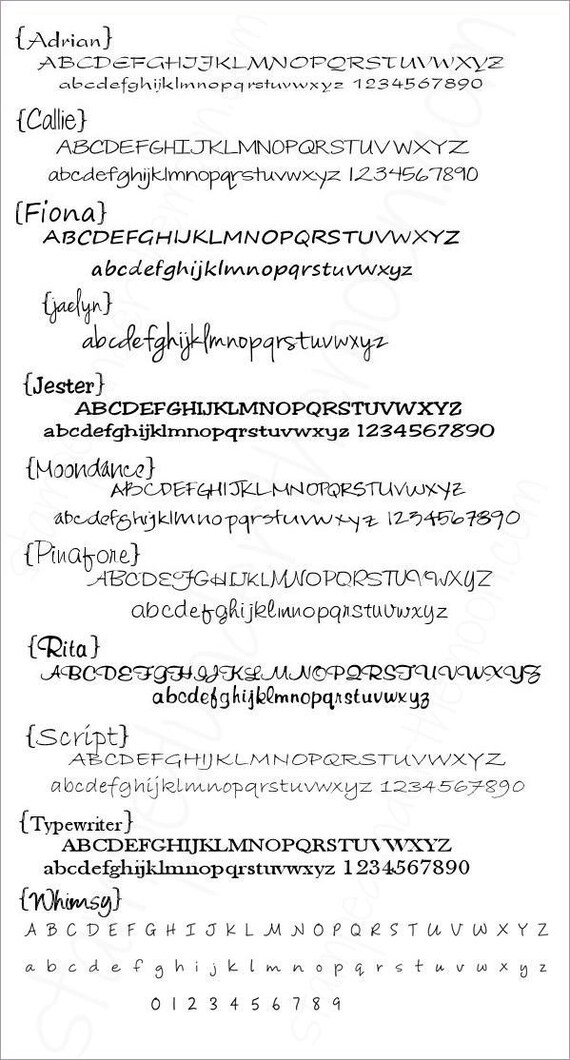 {Adrian}
ABCDEFGHIJFKLMNOPQRSTUVWXYZ
abcdefghijklmnopqrstuvwxyz 1234567890
{Callie}
ABCDEFGHIJKLMNOPQRSTUVWXYZ
abcdefghijklmnopqrstuvwxyz 1234567890
{Fiona}
ABCDEFGHIJKLMNOPQRSTUVWXYZ
abcdefghijklmnopqrstuvwxyz
{jaelyn}
abcdefghijklmnopqrstuvwxyz
{Jester}
ABCDEFGHIJKLMNOPQRSTUVWXYZ
abcdefghijklmnopqrstuvwxyz 1234567890
{Moondance}
ABCDEFGHIJKLMNOPQRSTUVWXYZ
abcdefghijklmnopqrstuvwxyz 1234567890
{Pinafore}
ABCDEFGHIJKLMNOPQRSTUVWXYZ
abcdefghijklmnopqrstuvwxyz
{Rita}
ABCDEFGHIJKLMNOPQRSTUVWXYZ
abcdefghijklmnopqrstuvwxyz
{Script}
ABCDEFGHIJKLMNOPQRSTUVWXYZ
abcdefghijklmnopqrstuvwxyz 1234567890
{Typewriter}
ABCDEFGHIJKLMNOPQRSTUVWXYZ
abcdefghijklmnopqrstuvwxyz 1234567890
{Whimsy}
A B C D E F G H I J K L M N O P Q R S T U V W X Y Z
a b c d e f g h i j k l m n o p q r s t u v w x y z
0 1 2 3 4 5 6 7 8 9